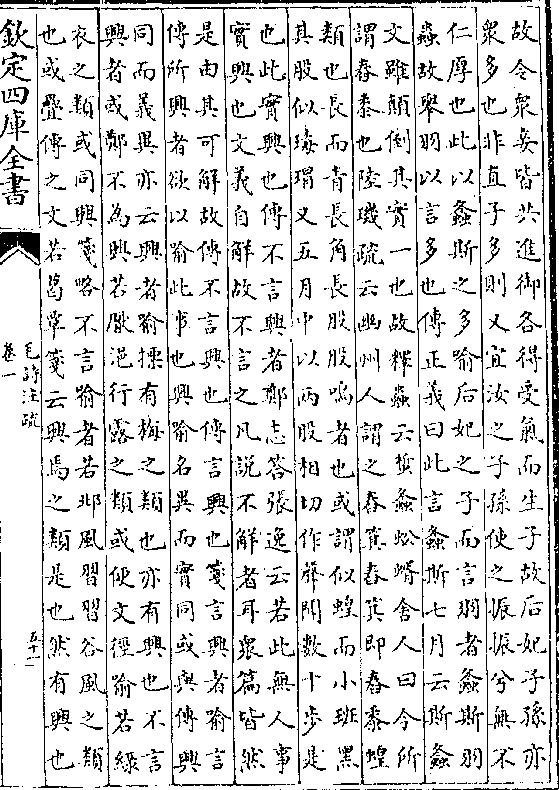 故令衆妾皆共進御各得受氣而生子故后妃子孫亦
衆多也非直子多則又宜汝之子孫使之振振兮無不
仁厚也此以螽斯之多喻后妃之子而言羽者螽斯羽
蟲故舉羽以言多也傳正義曰此言螽斯七月云斯螽
文雖顛倒其實一也故釋蟲云蜤螽蜙蝑舍人曰今所
謂舂黍也陸璣疏云幽州人謂之舂箕舂箕即舂黍蝗
類也長而青長角長股股鳴者也或謂似蝗而小班黑
其股似瑇瑁又五月中以兩股相切作聲聞數十步是
也此實興也傳不言興者鄭志答張逸云若此無人事
實興也文義自解故不言之凡說不解者耳衆篇皆然
是由其可解故傳不言興也傳言興也箋言興者喻言
傳所興者欲以喻此事也興喻名異而實同或與傳興
同而義異亦云興者喻摽有梅之類也亦有興也不言
興者或鄭不為興若厭浥行露之類或便文徑喻若綠
衣之類或同興箋略不言喻者若邶風習習谷風之類
也或疊傳之文若葛覃箋云興焉之類是也然有興也
欽定四庫全書
毛詩注疏
卷一
五十一